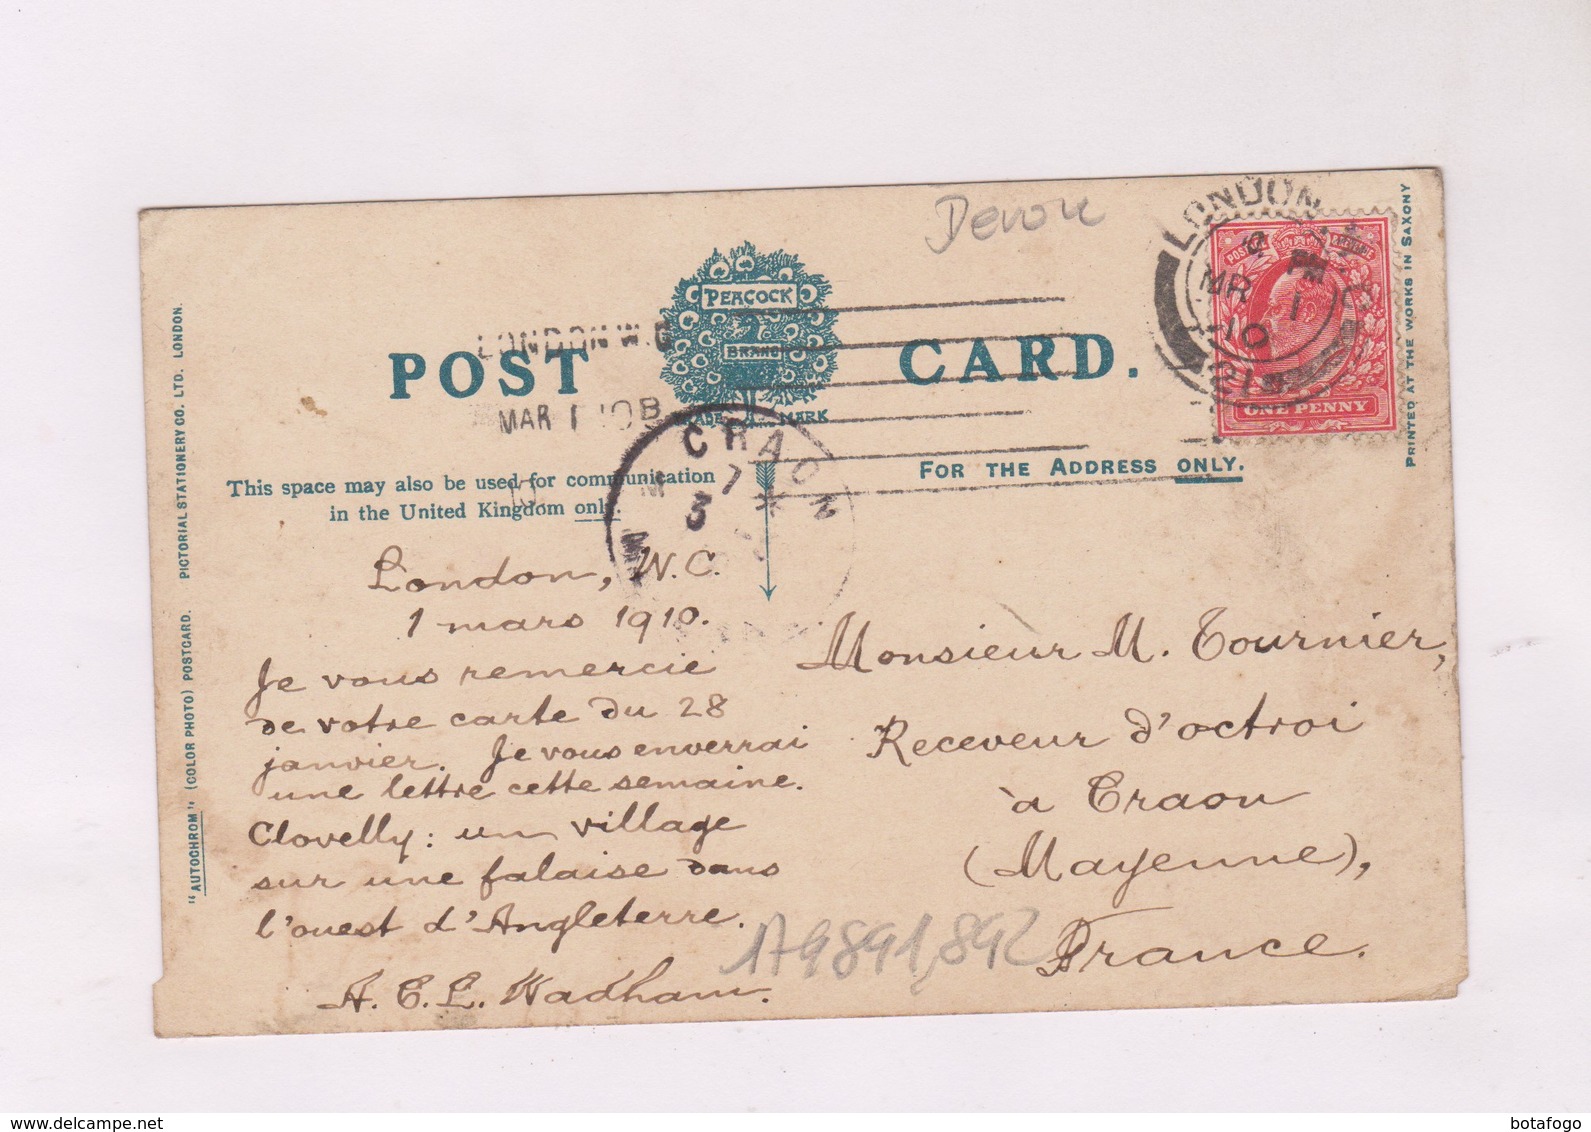 Devon
LONDON W.C
MR 1
10
PM
POSTAGE
REVENUE
ONE PENNY
PEACOCK
BRAND
TRADE MARK
POST CARD.
LONDON W.C
MAR 1 10
CRAON
7
3
This space may also be used for communication
in the United Kingdom only.
FOR THE ADDRESS ONLY.
London, W.C.
1 mars 1910.
Je vous remercie
de votre carte du 28
janvier. Je vous enverrai
une lettre cette semaine.
Clovelly: un village
sur une falaise dans
l'ouest d'Angleterre.
A. C. L. Wadham.
Monsieur M. Tournier,
Receveur d'octroi
à Craon
(Mayenne),
France.
179891,892
"AUTOCHROM" (COLOR PHOTO) POSTCARD. PICTORIAL STATIONERY CO. LTD. LONDON.
PRINTED AT THE WORKS IN SAXONY
botafogo